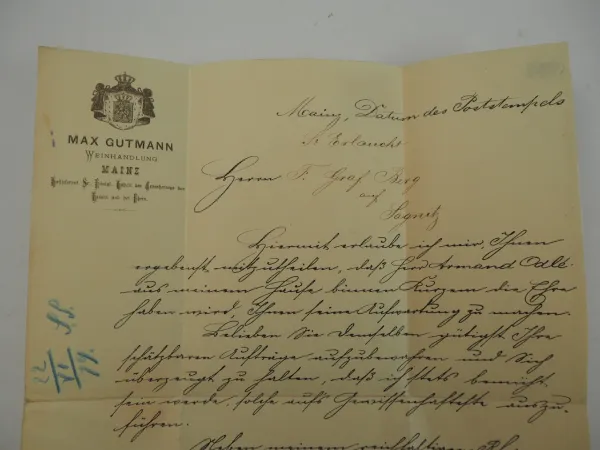 MAX GUTMANN
WEINHANDLUNG
MAINZ
Hoflieferant Sr. Königl. Hoheit des Grossherzogs von
Hessen und bei Rhein.
Mainz, Datum des Poststempels
Sr Erlaucht
Herrn F. Graf Berg
auf
Sagnitz
Hiermit erlaube ich mir, Ihnen
ergebenst mitzutheilen, daß Herr Armand Odlt.
aus meinem Hause binnen Kurzem die Ehre
haben wird, Ihnen seine Aufwartung zu machen.
Belieben Sie demselben gütigst Ihre
schätzbaren Aufträge aufzubewahren und Sich
überzeugt zu halten, daß ich stets bemüht
sein werde, solche aufs Gewissenhafteste auszu-
führen.
Neben meinem reichhaltigen
22
VI